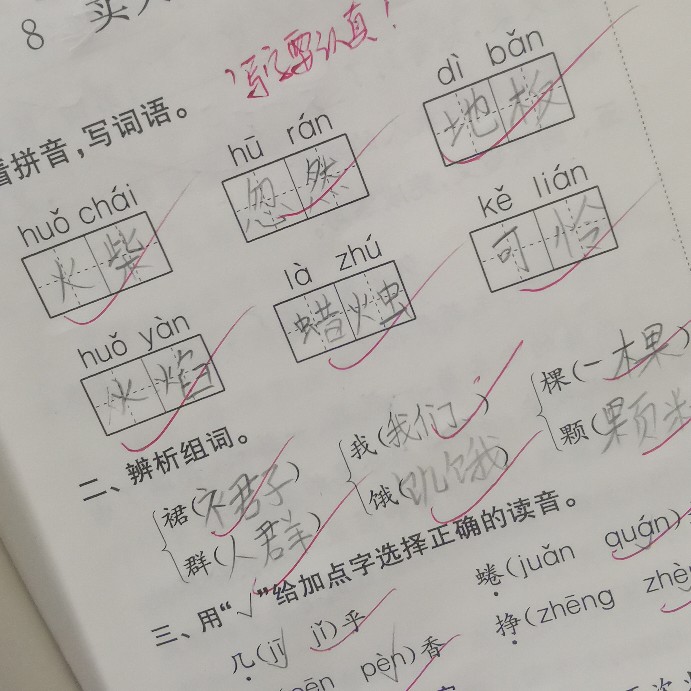 8 卖
写字要认真!
看拼音,写词语。
huǒ chái hū rán dì bǎn
火柴 忽然 地板
huǒ yàn là zhú kě lián
火焰 蜡烛 可怜
二、辨析组词。
裙(裙子) 我(我们) 棵(一棵果)
群(人群) 饿(饥饿) 颗(颗粒
三、用“√”给加点字选择正确的读音。
几(jī jǐ)乎 蜷(juǎn quán)
pèn)香 挣(zhēng zhèn